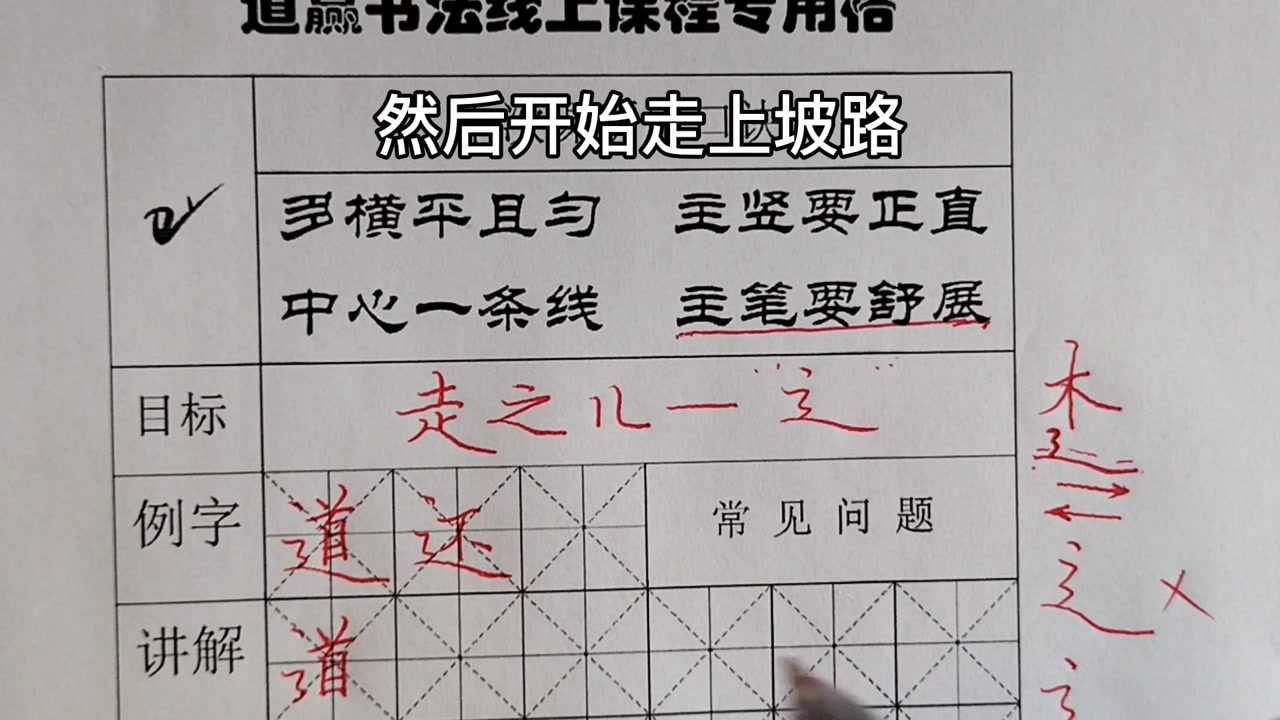 道赢书法线上课程专用格
然后开始走上坡路
多横平且匀 主竖要正直
中心一条线 主笔要舒展
目标 走之儿一"辶"
木
辶
例字 道 还 常见问题
辶
讲解 道